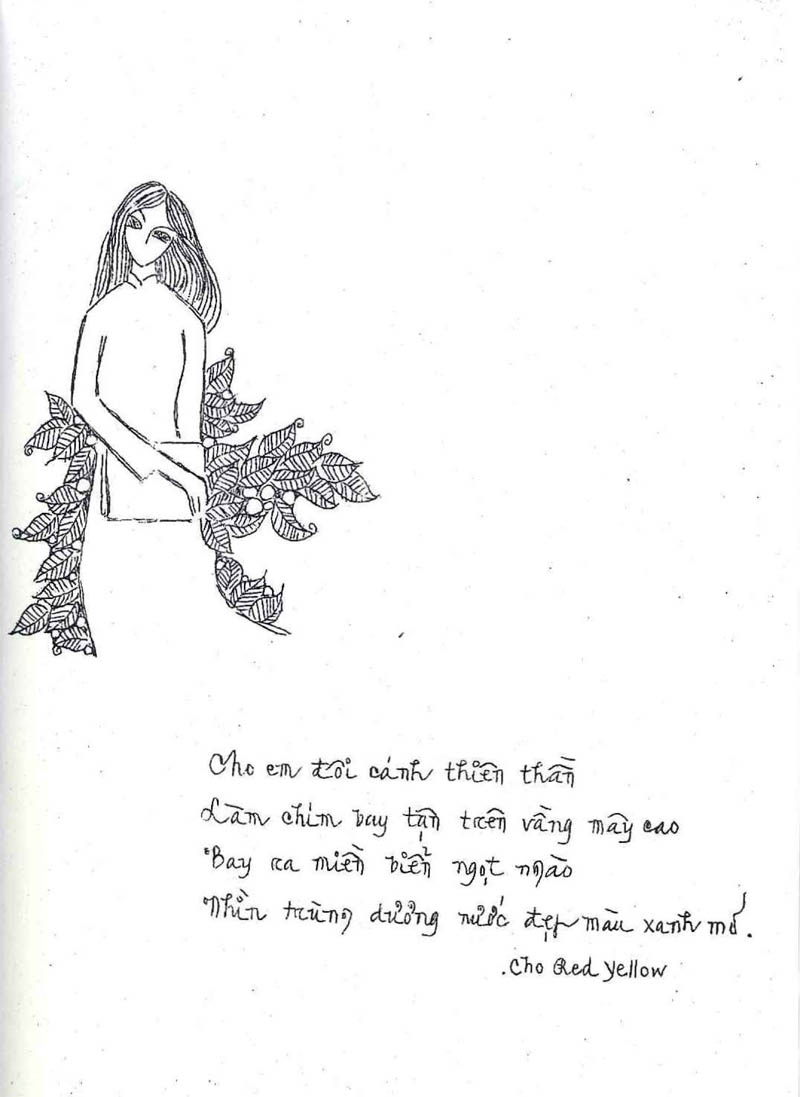 Cho em đôi cánh thiên thần
Làm chim bay tận trên vầng mây cao
Bay ra miền biển ngọt ngào
Nhìn trùng dương nước đẹp màu xanh mơ.
.cho Red Yellow